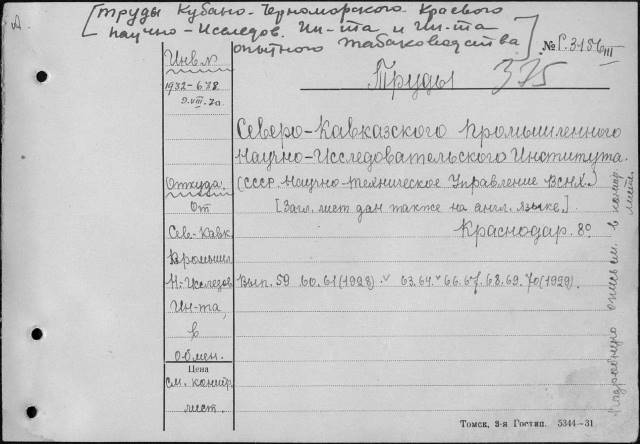 [Труды Кубано-Черноморского Краевого
Научно-Исследов. Ин-та и Ин-та
опытного табаководства]
№ Г.3156 III
Инв. №
Труды
375
1932-678
9.VIII.70
Северо-Кавказского Промышленного
Научно-Исследовательского Института.
Откуда.
(СССР. Научно-техническое Управление ВСНХ.)
От
[Загл. лист дан также на англ. языке.]
Сев.-Кавк.
Краснодар. 8º
Промышл.
Н-Исследов.
Вып. 59 60. 61 (1928). v 63. 64. v 66. 67. 68. 69. 70 (1929).
Ин-та,
в
обмен.
Цена
см. контр.
лист.
Подробную опись см. в контр.
листе.
Томск, 2-я Гостип. 5344—31